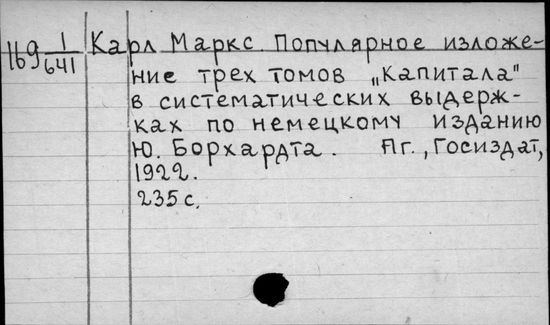 169 1/641 Карл Маркс. Популярное изложе-
ние трех томов „Капитала"
в систематических выдерж-
ках по немецкому изданию
Ю. Борхардта. Пг., Госиздат,
1922.
235 с.